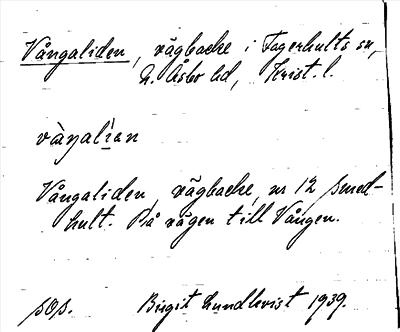 Vångaliden, vägbacke i Fagerhults sn,
N. Åsbo hd, Krist. l.
Vångaliden, vägbacke, nr 12 Smed-
hult. På vägen till Vången.
Birgit Lundkvist 1939.